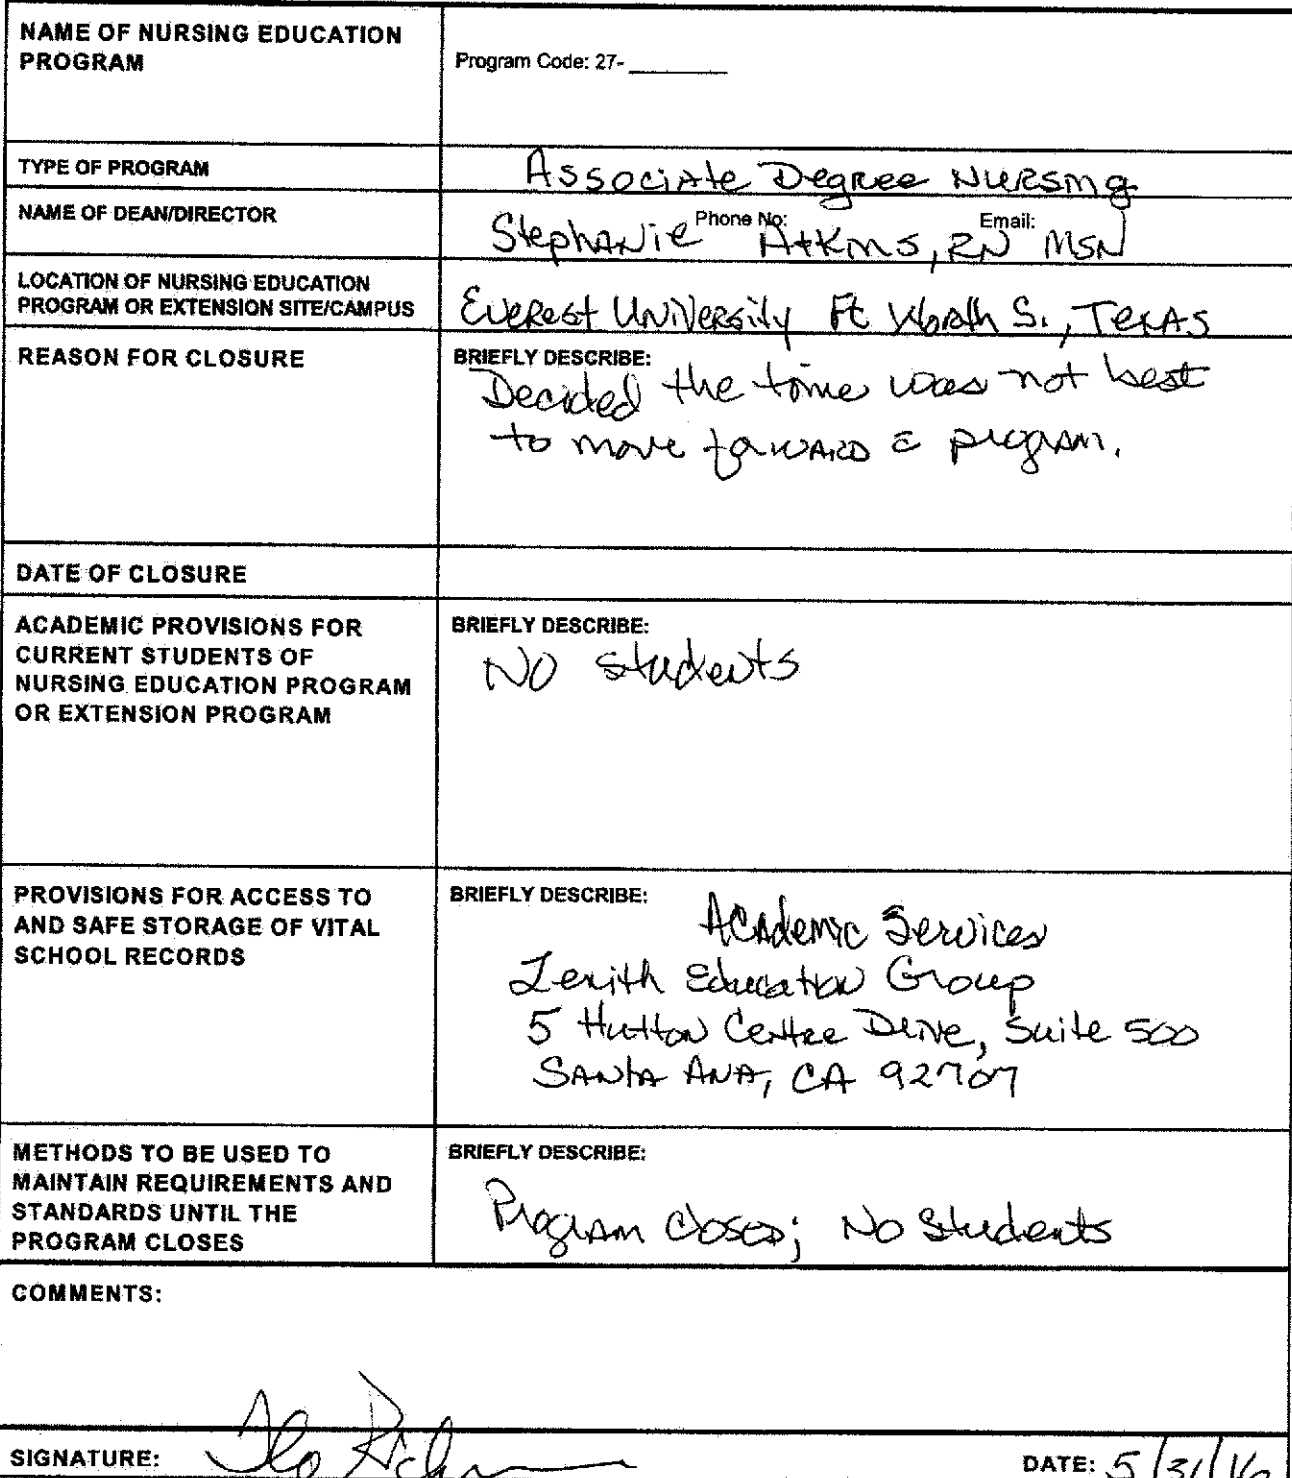 NAME OF NURSING EDUCATION
PROGRAM
Program Code: 27- ________
TYPE OF PROGRAM
Associate Degree Nursing
NAME OF DEAN/DIRECTOR
Phone No: Email:
Stephanie Atkins, RN MSN
LOCATION OF NURSING EDUCATION
PROGRAM OR EXTENSION SITE/CAMPUS
Everest University Ft Worth S., Texas
REASON FOR CLOSURE
BRIEFLY DESCRIBE:
Decided the time was not best
to move forward c̄ program.
DATE OF CLOSURE
ACADEMIC PROVISIONS FOR
CURRENT STUDENTS OF
NURSING EDUCATION PROGRAM
OR EXTENSION PROGRAM
BRIEFLY DESCRIBE:
NO students
PROVISIONS FOR ACCESS TO
AND SAFE STORAGE OF VITAL
SCHOOL RECORDS
BRIEFLY DESCRIBE:
Academic Services
Zenith Education Group
5 Hutton Centre Drive, Suite 500
Santa Ana, CA 92707
METHODS TO BE USED TO
MAINTAIN REQUIREMENTS AND
STANDARDS UNTIL THE
PROGRAM CLOSES
BRIEFLY DESCRIBE:
Program closed; No Students
COMMENTS:
SIGNATURE:
DATE: 5/31/16